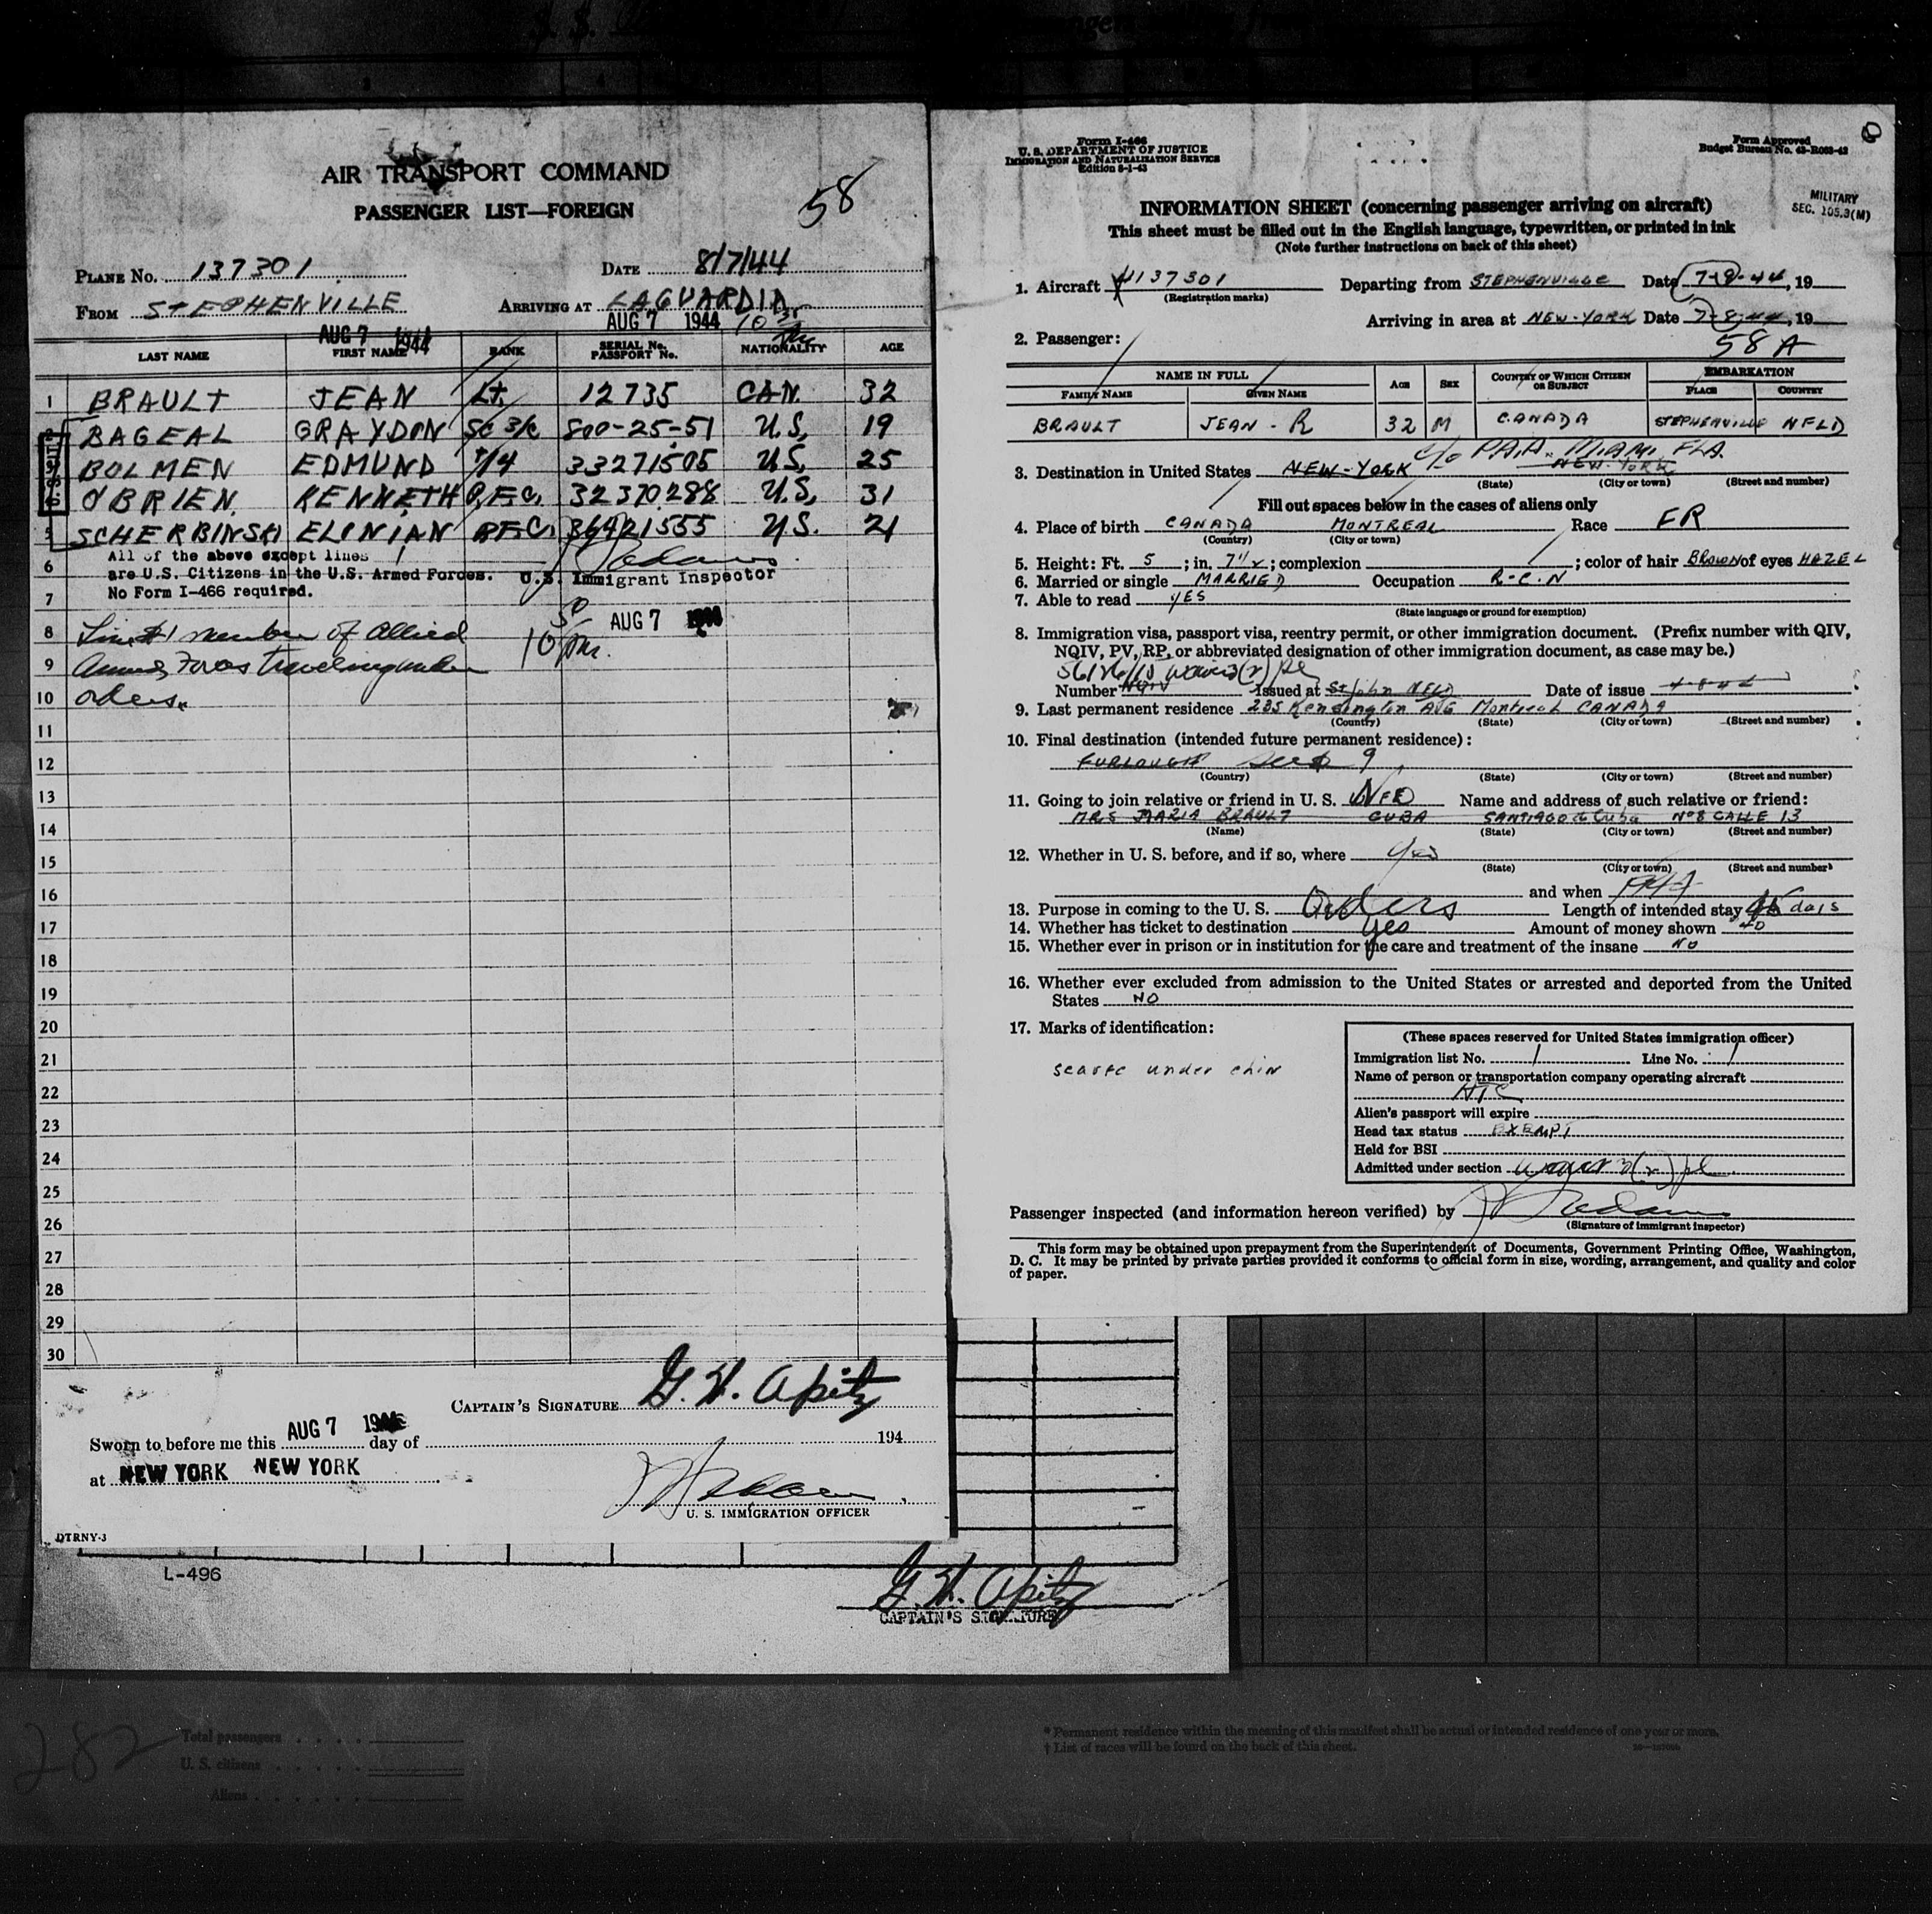 AIR TRANSPORT COMMAND
PASSENGER LIST—FOREIGN
58
PLANE NO. 137301 DATE 8/7/44
FROM STEPHENVILLE ARRIVING AT LAGUARDIA
AUG 7 1944 AUG 7 1944 10
LAST NAME FIRST NAME RANK SERIAL No. PASSPORT No. NATIONALITY AGE
1 BRAULT JEAN Lt. 12735 CAN. 32
BAGEAL GRAYDON SC 3/c 800-25-51 U.S. 19
BOLMEN EDMUND T/4 33271505 U.S. 25
O'BRIEN KENNETH P.F.C. 32370288 U.S. 31
5 SCHERBINSKI ELINIAN P.F.C. 36421555 U.S. 21
6 All of the above except lines 1
are U.S. Citizens in the U.S. Armed Forces. U.S. Immigrant Inspector
7 No Form I-466 required.
8 Line #1 member of Allied AUG 7
9 Armed Forces traveling under 10 pm.
10 orders.
11
12
13
14
15
16
17
18
19
20
21
22
23
24
25
26
27
28
29
30
CAPTAIN'S SIGNATURE G. H. Apitz
Sworn to before me this AUG 7 day of 194
at NEW YORK NEW YORK
U. S. IMMIGRATION OFFICER
DTRNY-3
L-496
G. H. Apitz
CAPTAIN'S SIGNATURE
282 Total passengers
U. S. citizens
Aliens
Form I-466
U. S. DEPARTMENT OF JUSTICE
IMMIGRATION AND NATURALIZATION SERVICE
Edition 8-1-43
Form Approved
Budget Bureau No. 43-R083-42
MILITARY
SEC. 105.3(M)
INFORMATION SHEET (concerning passenger arriving on aircraft)
This sheet must be filled out in the English language, typewritten, or printed in ink
(Note further instructions on back of this sheet)
1. Aircraft 137301 Departing from STEPHENVILLE Date 7-8-44, 19
(Registration marks)
Arriving in area at NEW-YORK Date 7-8-44, 19
2. Passenger: 58 A
NAME IN FULL AGE SEX COUNTRY OF WHICH CITIZEN OR SUBJECT EMBARKATION
FAMILY NAME GIVEN NAME PLACE COUNTRY
BRAULT JEAN - R 32 M CANADA STEPHENVILLE NFLD
c/o P.A.A. MIAMI FLA.
3. Destination in United States NEW-YORK NEW-YORK
(State) (City or town) (Street and number)
Fill out spaces below in the cases of aliens only
4. Place of birth CANADA MONTREAL Race FR
(Country) (City or town)
5. Height: Ft. 5; in. 7 1/2; complexion ; color of hair BROWN of eyes HAZEL
6. Married or single MARRIED Occupation R-C-N
7. Able to read YES
(State language or ground for exemption)
8. Immigration visa, passport visa, reentry permit, or other immigration document. (Prefix number with QIV,
NQIV, PV, RP, or abbreviated designation of other immigration document, as case may be.)
Number NQIV Issued at St John NFLD Date of issue
9. Last permanent residence 235 Kensington AVE Montreal CANADA
(Country) (State) (City or town) (Street and number)
10. Final destination (intended future permanent residence):
FURLOUGH see 9
(Country) (State) (City or town) (Street and number)
11. Going to join relative or friend in U. S. Name and address of such relative or friend:
MRS MARIA BRAULT CUBA SANTIAGO de Cuba No 8 CALLE 13
(Name) (State) (City or town) (Street and number)
12. Whether in U. S. before, and if so, where Yes
(State) (City or town) (Street and number)
and when
13. Purpose in coming to the U. S. Orders Length of intended stay days
14. Whether has ticket to destination yes Amount of money shown 40
15. Whether ever in prison or in institution for the care and treatment of the insane NO
16. Whether ever excluded from admission to the United States or arrested and deported from the United
States NO
17. Marks of identification:
scarfe under chin
(These spaces reserved for United States immigration officer)
Immigration list No. 1 Line No. 1
Name of person or transportation company operating aircraft
ATC
Alien's passport will expire
Head tax status EXEMPT
Held for BSI
Admitted under section
Passenger inspected (and information hereon verified) by
(Signature of immigrant inspector)
This form may be obtained upon prepayment from the Superintendent of Documents, Government Printing Office, Washington,
D. C. It may be printed by private parties provided it conforms to official form in size, wording, arrangement, and quality and color
of paper.
* Permanent residence within the meaning of this manifest shall be actual or intended residence of one year or more.
† List of races will be found on the back of this sheet.